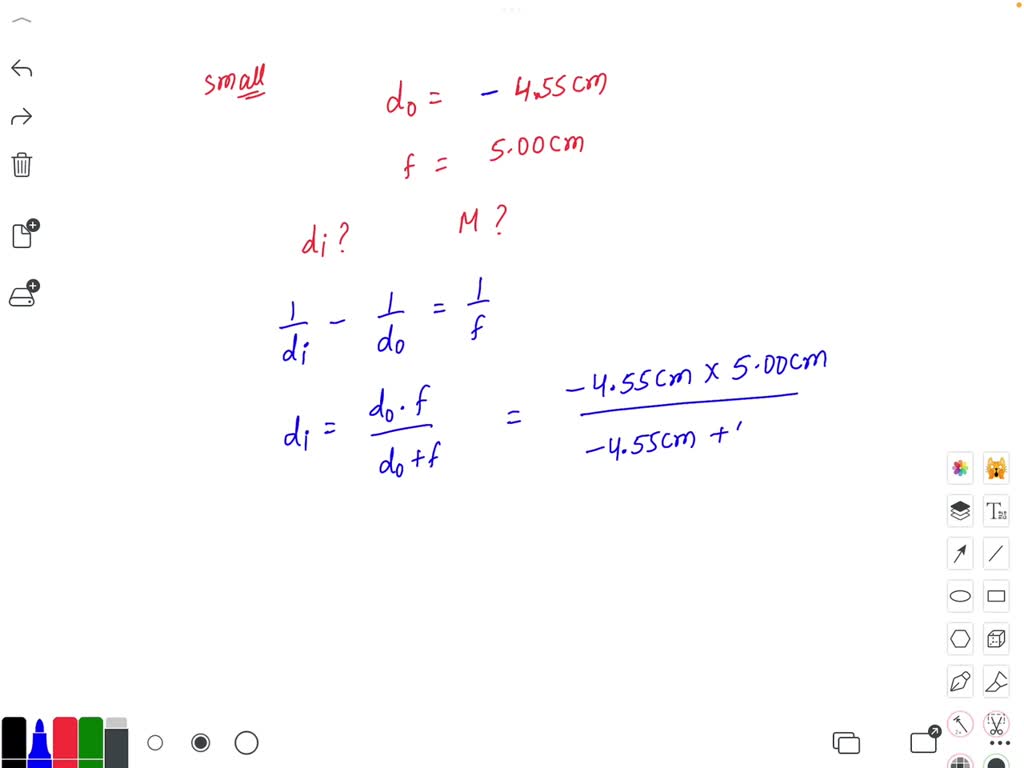 small
d₀ = - 4.55 cm
f = 5.00 cm
di ? M ?
1/di - 1/d₀ = 1/f
di = d₀ · f / d₀ + f = -4.55 cm × 5.00 cm / -4.55 cm + '